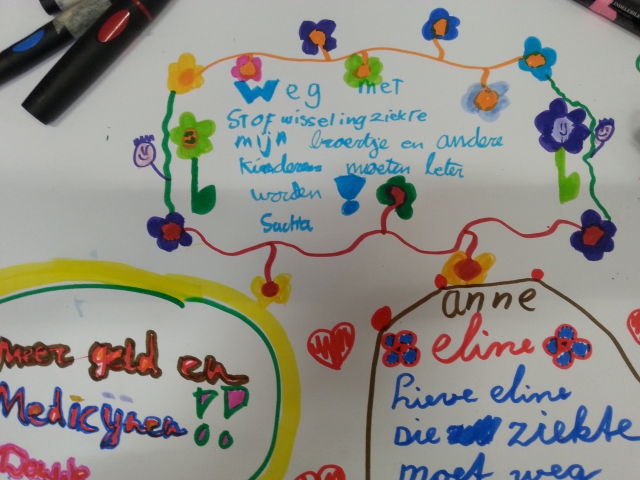 Weg met
Stofwisselingziekte
mijn broertje en andere
kinderen moeten beter
worden !
Sacha
meer geld en
Medicijnen !!
anne
eline
Lieve eline
Die ziekte
moet weg